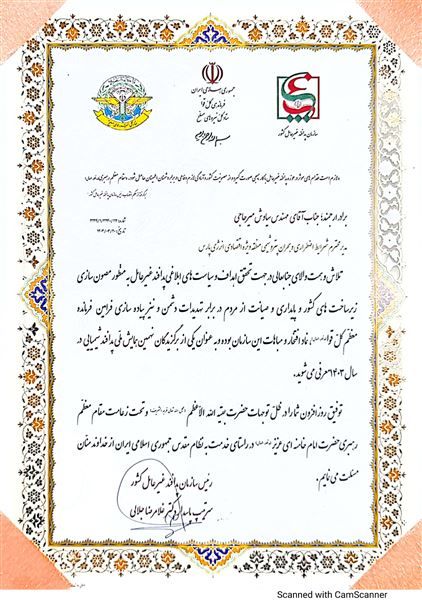 جمهوری اسلامی ایران
فرماندهی کل قوا
ستاد کل نیروهای مسلح
سازمان پدافند غیرعامل کشور
برادر ارجمند؛ جناب آقای مهندس سیاوش میرحاجی
مدیر محترم شرایط اضطراری و بحران پتروشیمی منطقه ویژه اقتصادی انرژی پارس
تلاش و همت والای جنابعالی در جهت تحقق اهداف و سیاست های ابلاغی پدافند غیرعامل به منظور مصون سازی
زیرساخت های کشور و پایداری و صیانت از مردم در برابر تهدیدات دشمن و نیز پیاده سازی فرامین فرمانده
معظم کل قوا نماد افتخار و مباهات این سازمان بوده و به عنوان یکی از برگزیدگان نهمین همایش ملی پدافند شیمیایی در
سال ۱۴۰۳ معرفی می شوید.
توفیق روزافزون شما را در ظل توجهات حضرت بقیه الله الاعظم و تحت زعامت مقام معظم
رهبری حضرت امام خامنه ای عزیز در راستای خدمت به نظام مقدس جمهوری اسلامی ایران از خداوند منان
مسئلت می نمایم.
رئیس سازمان پدافند غیرعامل کشور
سرتیپ پاسدار دکتر غلامرضا جلالی
Scanned with CamScanner